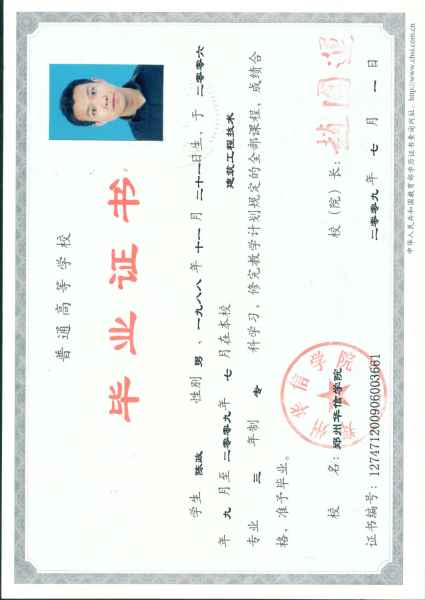 普通高等学校
毕业证书
学生 陈政 性别 男 、一九八八年 十一月 二十一日生，于 二零零六
年 九 月至二零零九年 七 月在本校 建筑工程技术
专业 三 年制 专 科学习，修完教学计划规定的全部课程，成绩合
格，准予毕业。
校 名：郑州华信学院 校（院）长：赵国运
郑州华信学院
证书编号：127471200906003661 二零零九年 七 月 一 日
中华人民共和国教育部学历证书查询网址：http://www.chsi.com.cn